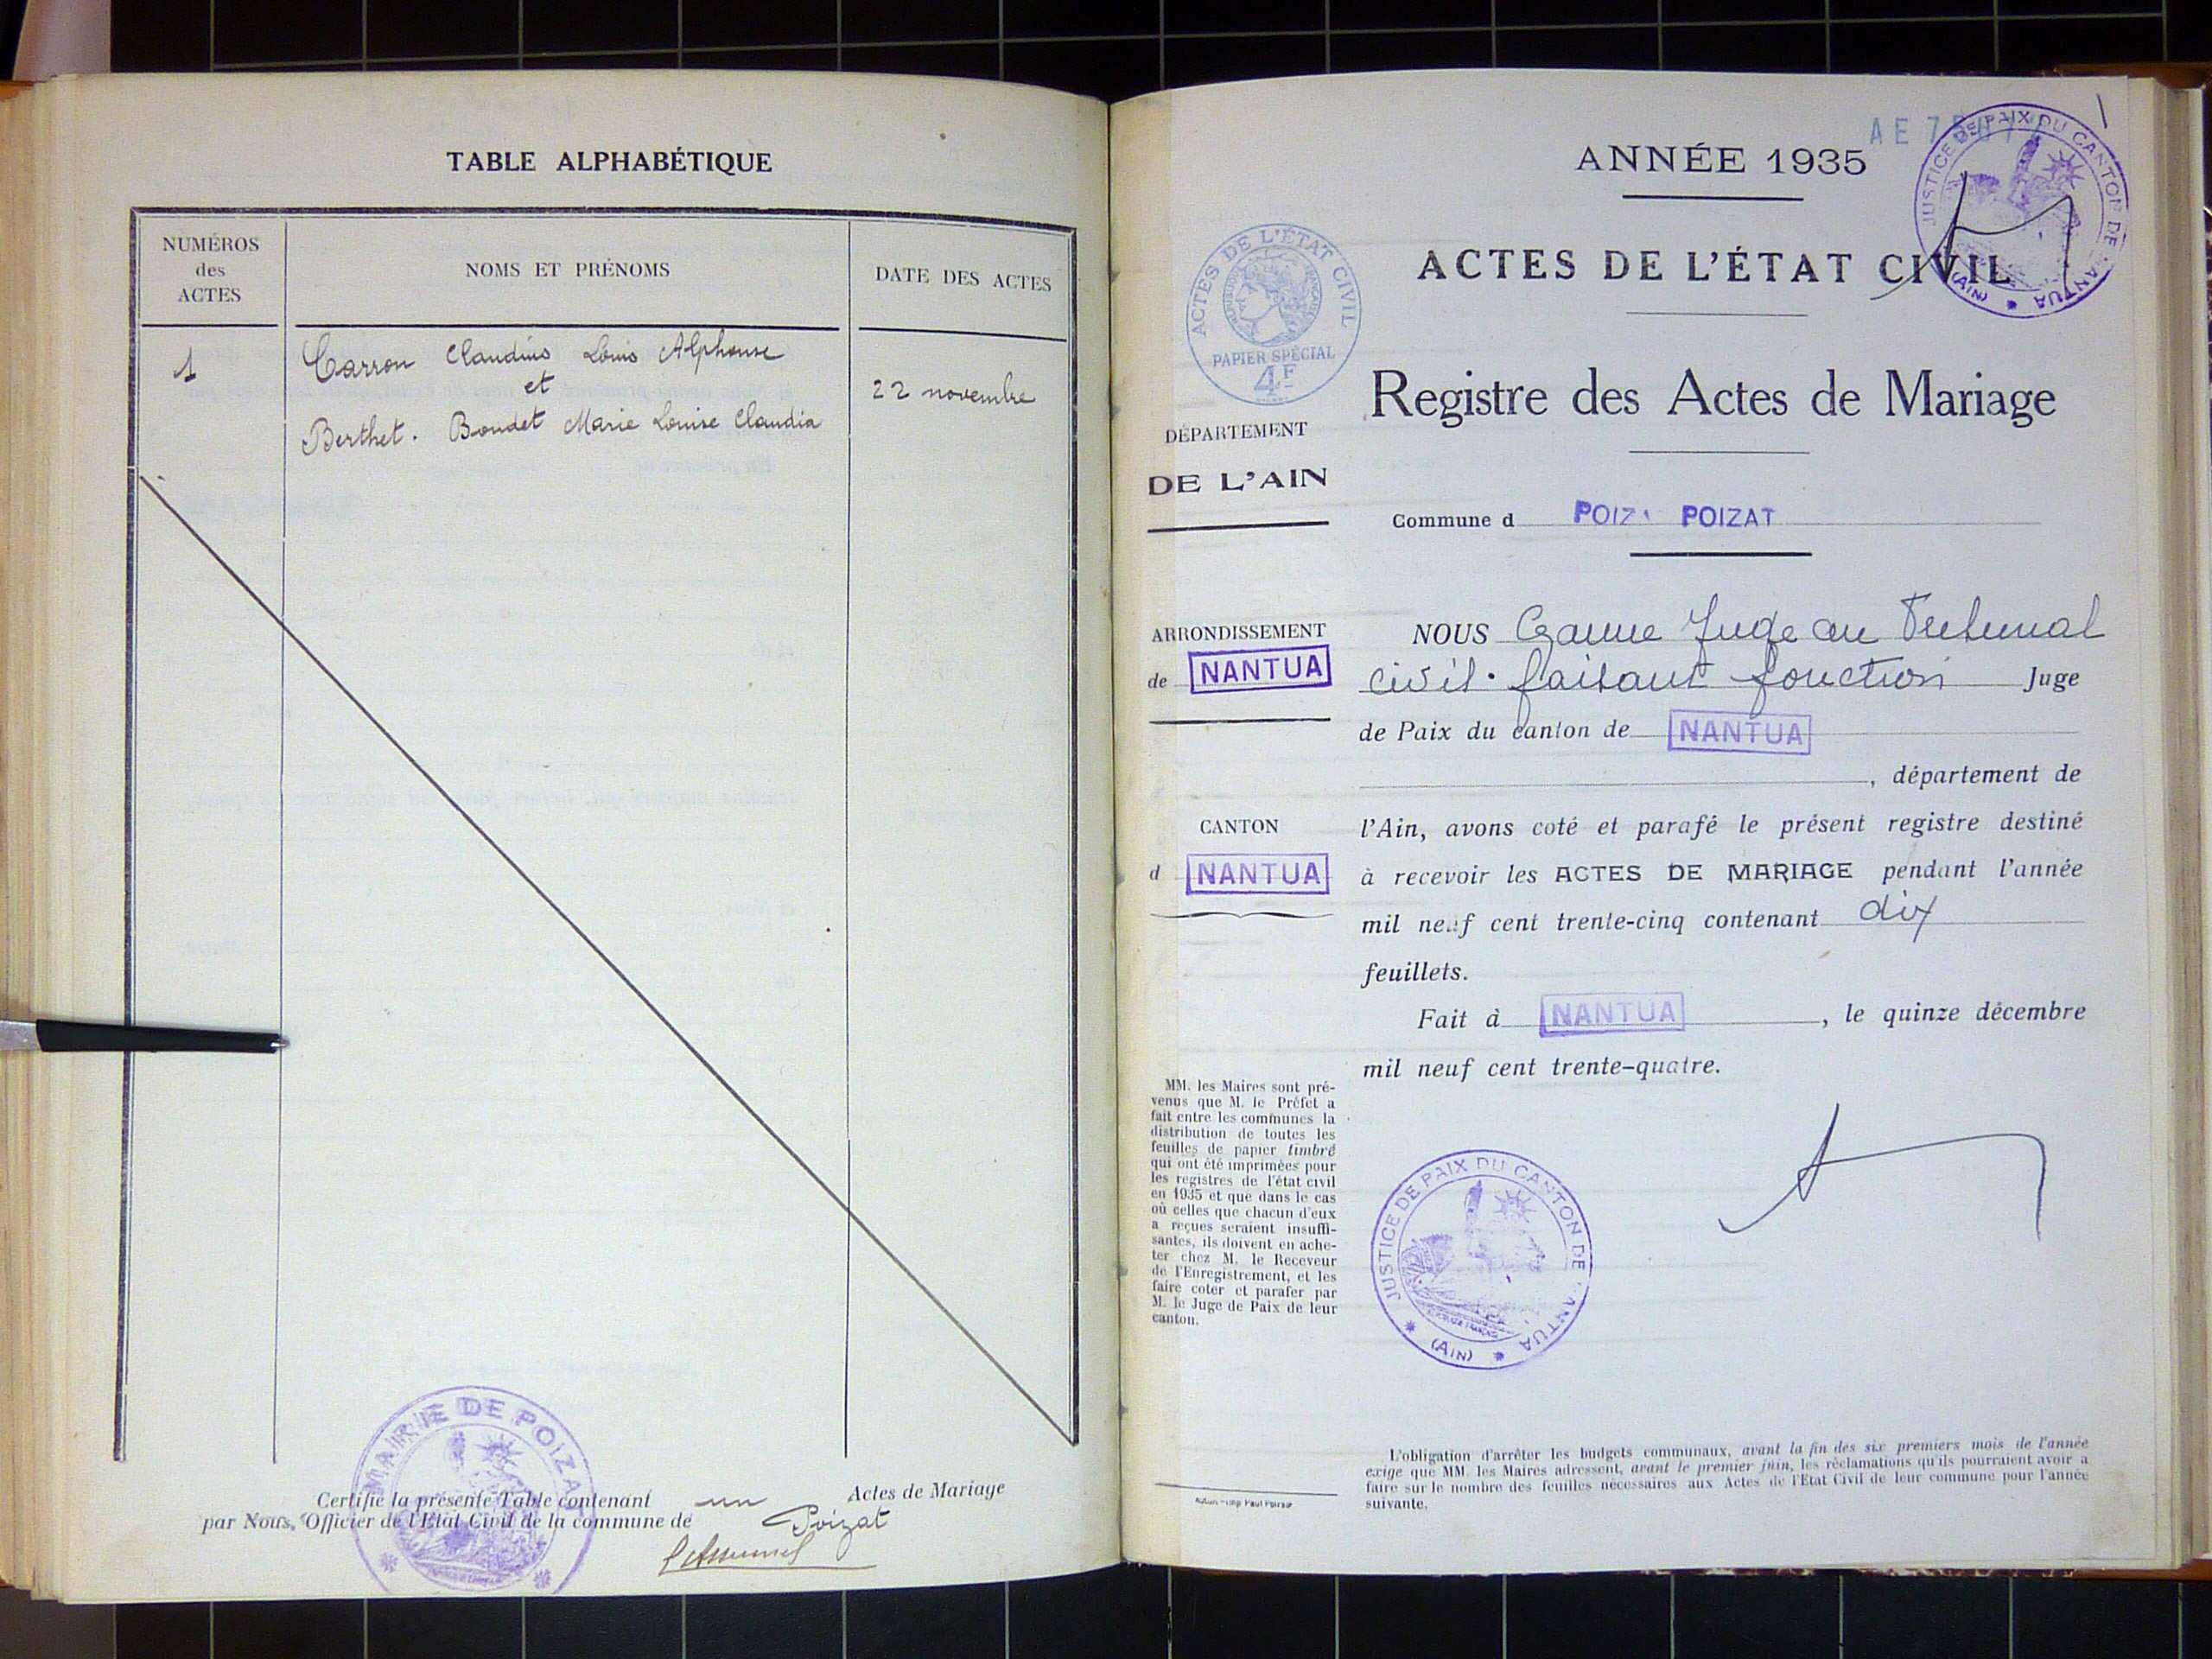 TABLE ALPHABÉTIQUE
NUMÉROS
des
ACTES
NOMS ET PRÉNOMS
DATE DES ACTES
1
Carron Claudius Louis Alphonse
et
Berthet. Boudet Marie Louise Claudia
22 novembre
MAIRIE DE POIZAT
Certifie la présente Table contenant un Actes de Mariage
par Nous, Officier de l'Etat Civil de la commune de Poizat
ANNÉE 1935
JUSTICE DE PAIX DU CANTON DE NANTUA
(AIN)
ACTES DE L'ÉTAT CIVIL
PAPIER SPÉCIAL
4F
ACTES DE L'ÉTAT CIVIL
Registre des Actes de Mariage
DÉPARTEMENT
DE L'AIN
Commune d POIZ POIZAT
ARRONDISSEMENT
de NANTUA
CANTON
d NANTUA
NOUS Juge au Tribunal
civil. faisant fonction Juge
de Paix du canton de NANTUA
, département de
l'Ain, avons coté et parafé le présent registre destiné
à recevoir les ACTES DE MARIAGE pendant l'année
mil neuf cent trente-cinq contenant dix
feuillets.
Fait à NANTUA, le quinze décembre
mil neuf cent trente-quatre.
MM. les Maires sont pré-
venus que M. le Préfet a
fait entre les communes la
distribution de toutes les
feuilles de papier timbré
qui ont été imprimées pour
les registres de l'état civil
en 1935 et que dans le cas
où celles que chacun d'eux
a reçues seraient insuffi-
santes, ils doivent en ache-
ter chez M. le Receveur
de l'Enregistrement, et les
faire coter et parafer par
M. le Juge de Paix de leur
canton.
JUSTICE DE PAIX DU CANTON DE NANTUA
(AIN)
L'obligation d'arrêter les budgets communaux, avant la fin des six premiers mois de l'année
exige que MM. les Maires adressent, avant le premier juin, les réclamations qu'ils pourraient avoir a
faire sur le nombre des feuilles nécessaires aux Actes de l'Etat Civil de leur commune pour l'année
suivante.